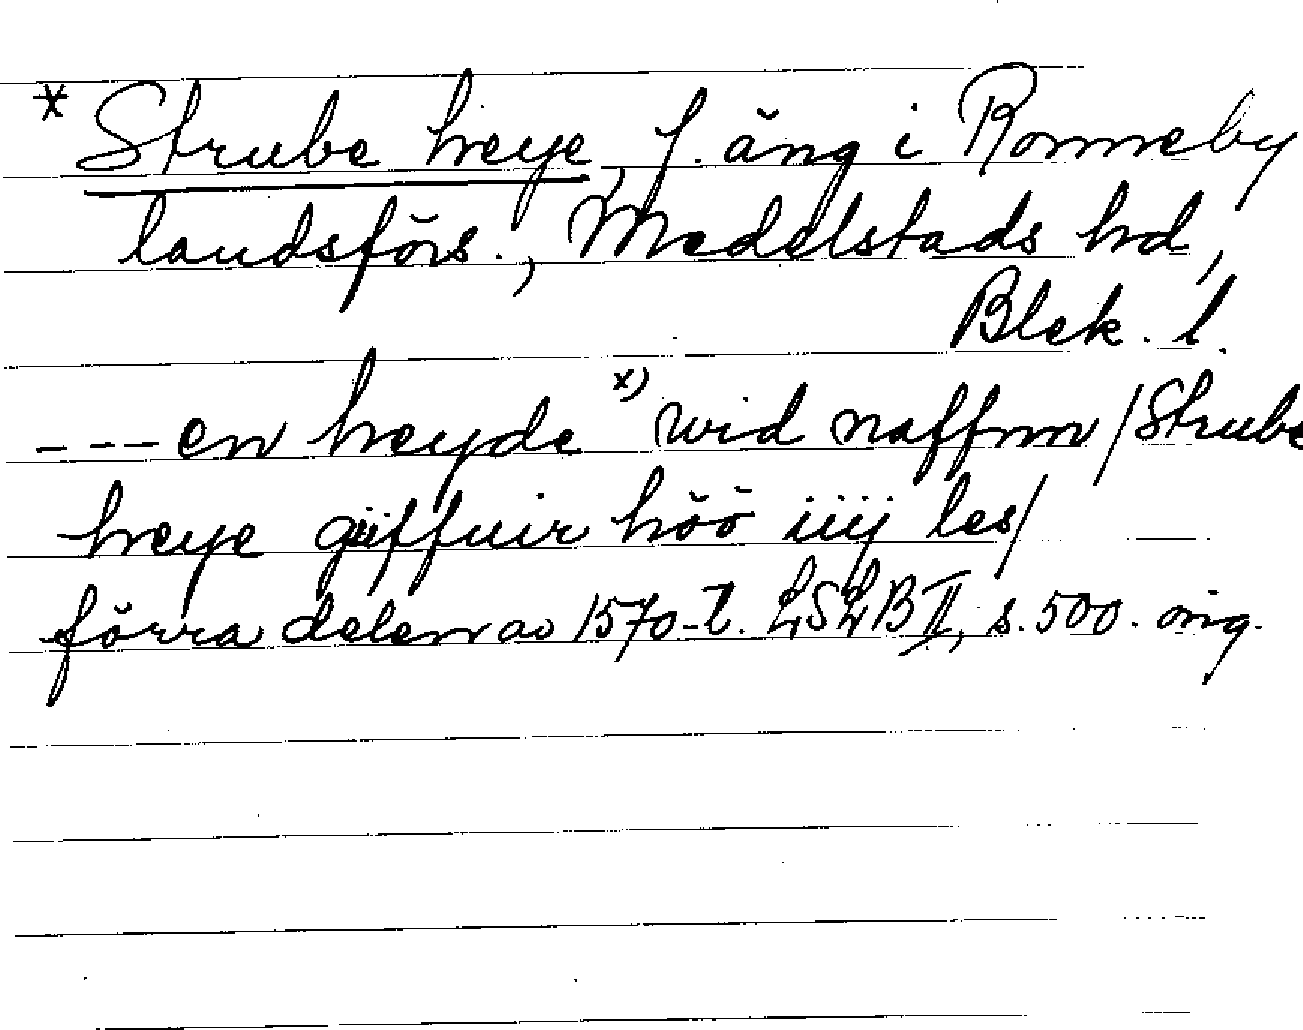 * Strube heye, f. äng i Ronneby
landsförs., Medelstads hd,
Blek. l.
---en heyde x) wid naffnn /Strube
heye giiffuir höö iiij les/
förra delen av 1570-t. LSLB II, s. 500. orig.